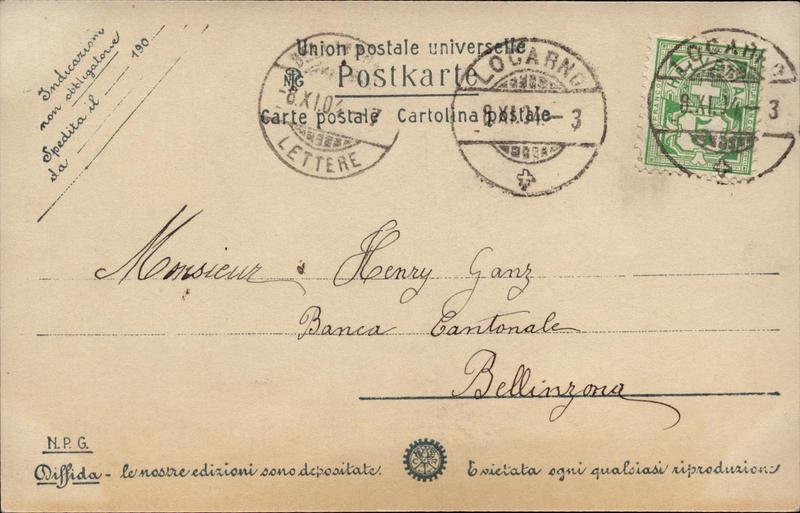 Indicazioni
non obbligatorie
Spedita il 190
da
Union postale universelle
Postkarte
Carte postale Cartolina postale
8.XI.04
LETTERE
LOCARNO
8.XI.04.-3
LOCARNO
8.XI.04-3
Monsieur Henry Ganz
Banca Cantonale
Bellinzona
N.P.G.
Diffida - le nostre edizioni sono depositate. E vietata ogni qualsiasi riproduzione